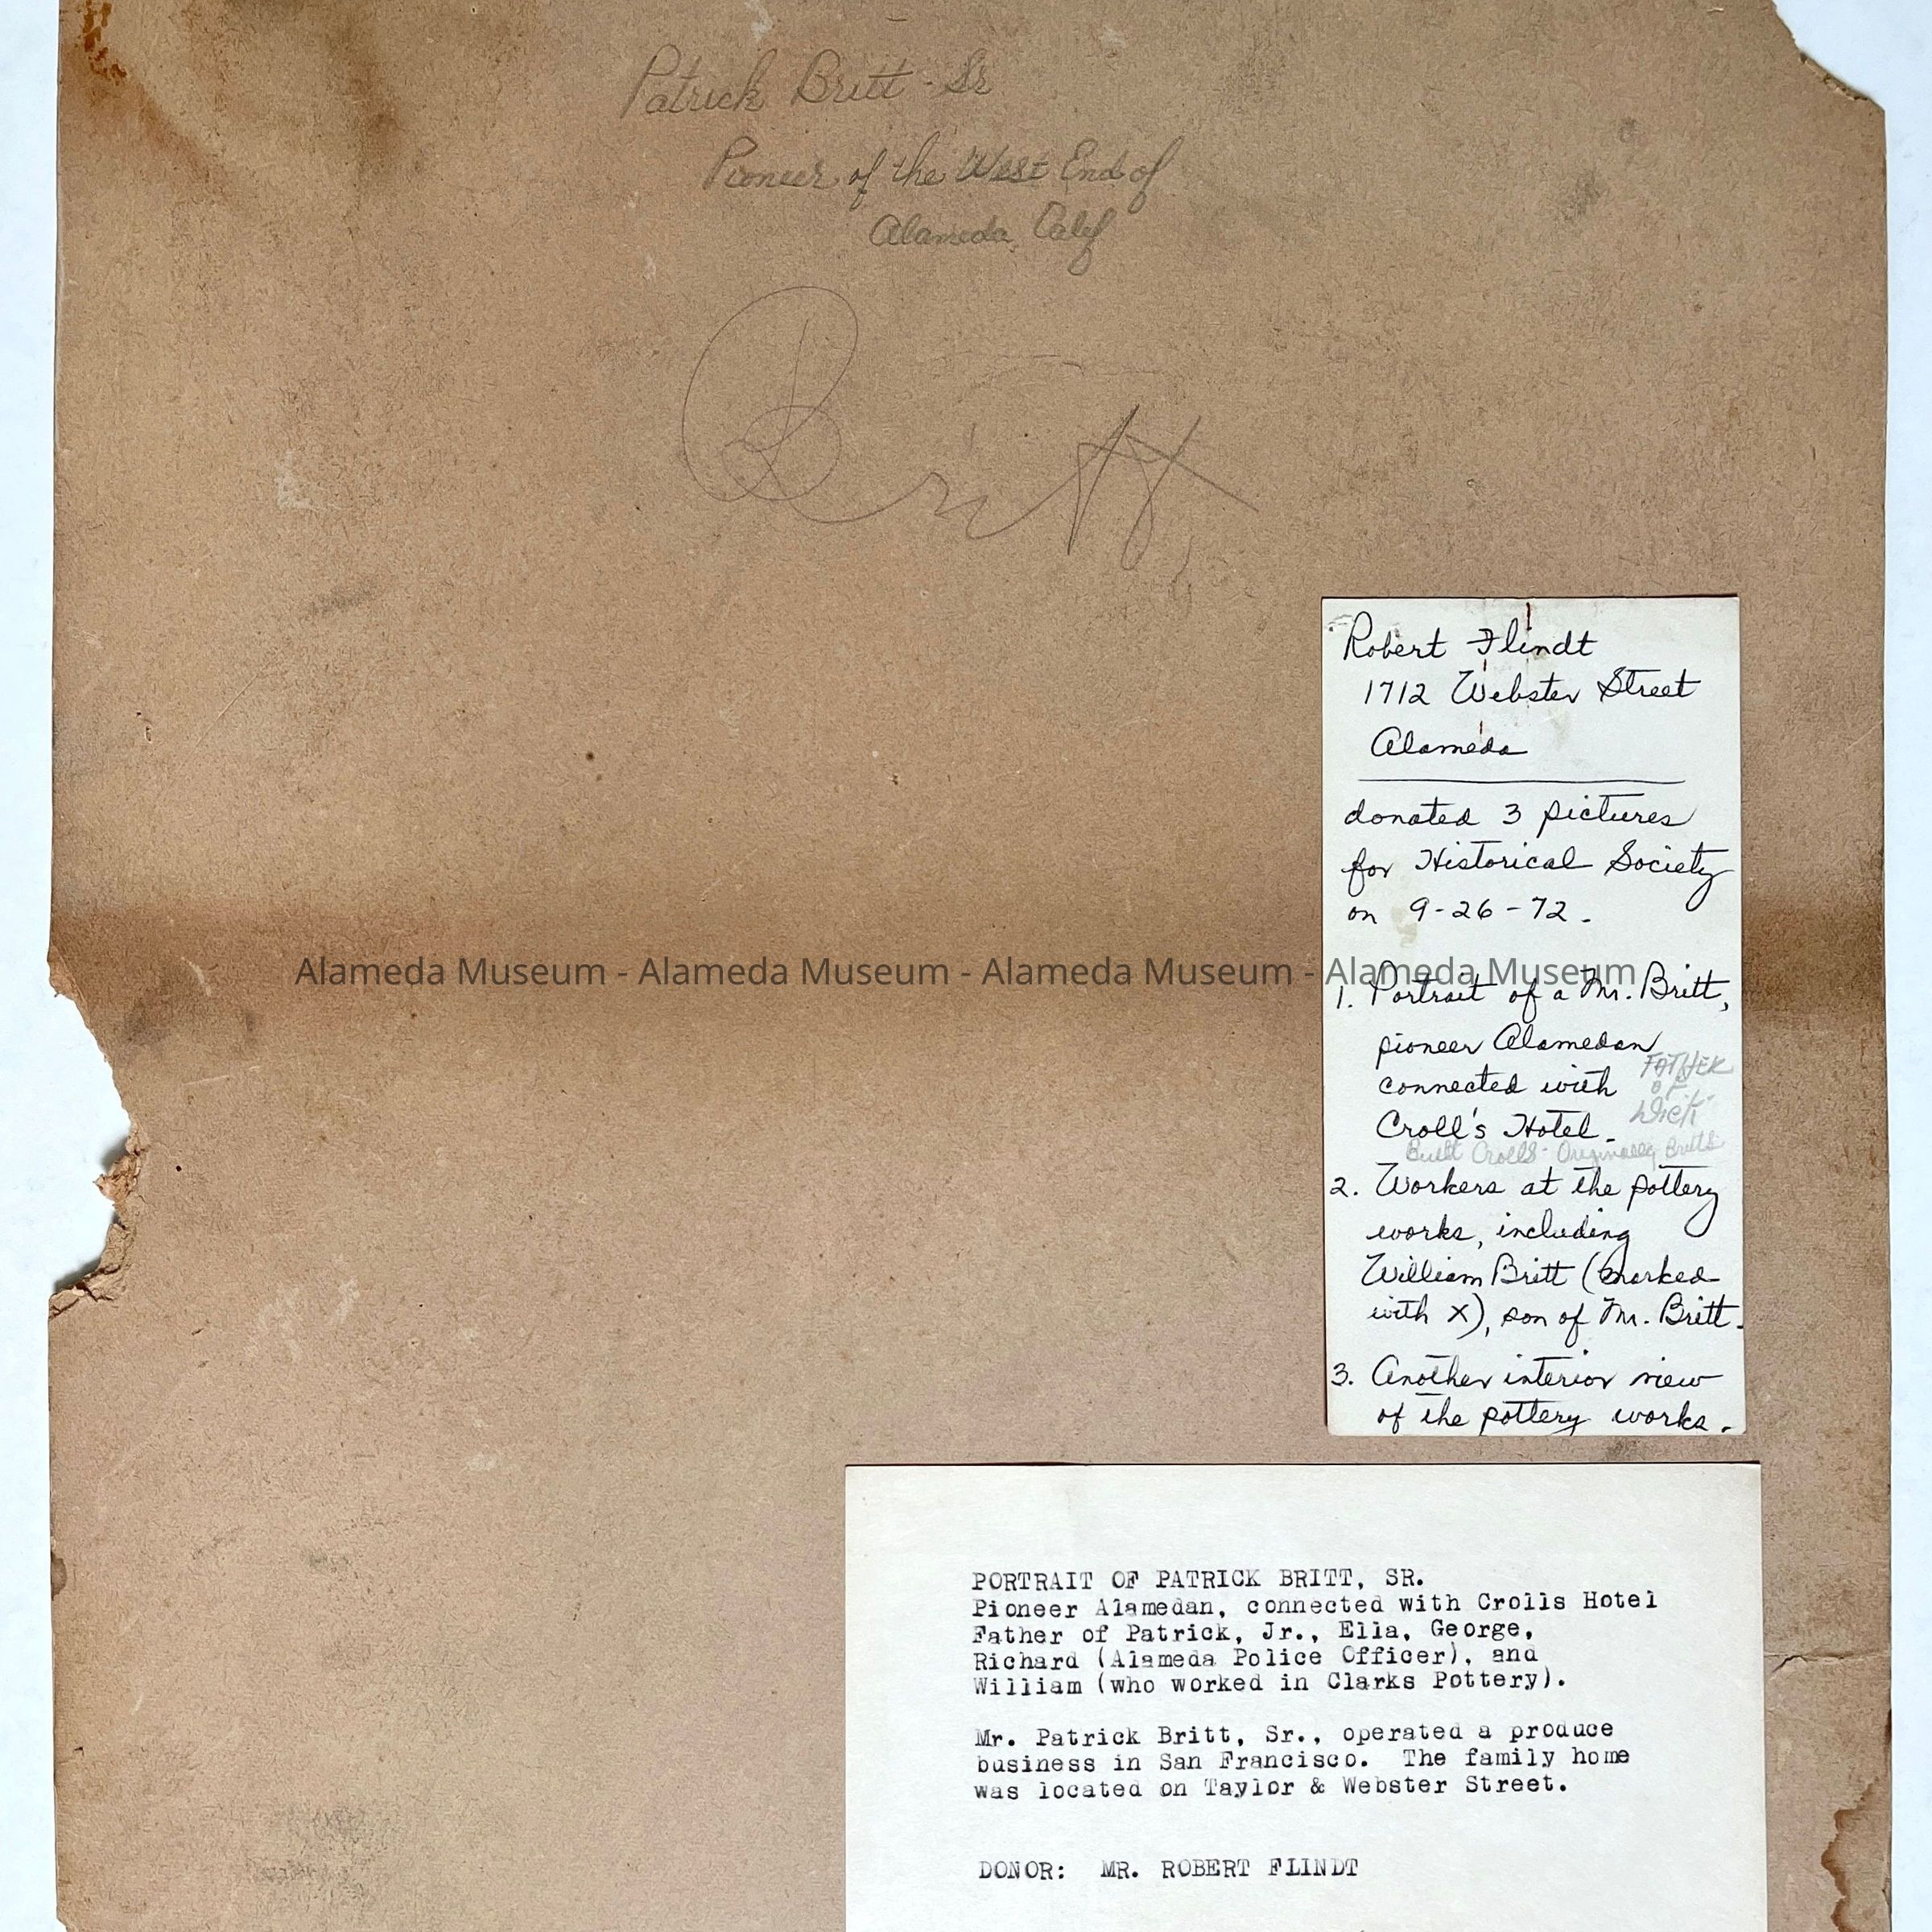 Patrick Britt - Sr
Pioneer of the West End of
Alameda, Calif
Britt
Robert Flindt
1712 Webster Street
Alameda
donated 3 pictures
for Historical Society
on 9-26-72.
Alameda Museum - Alameda Museum - Alameda Museum - Alameda Museum
1. Portrait of a Mr. Britt,
pioneer Alamedan
connected with
Croll's Hotel.
FATHER
OF
Dick
Built Crolls - Originally Britts
2. Workers at the pottery
works, including
William Britt (marked
with X), son of Mr. Britt.
3. Another interior view
of the pottery works.
PORTRAIT OF PATRICK BRITT, SR.
Pioneer Alamedan, connected with Crolls Hotel
Father of Patrick, Jr., Ella, George,
Richard (Alameda Police Officer), and
William (who worked in Clarks Pottery).
Mr. Patrick Britt, Sr., operated a produce
business in San Francisco. The family home
was located on Taylor & Webster Street.
DONOR: MR. ROBERT FLINDT